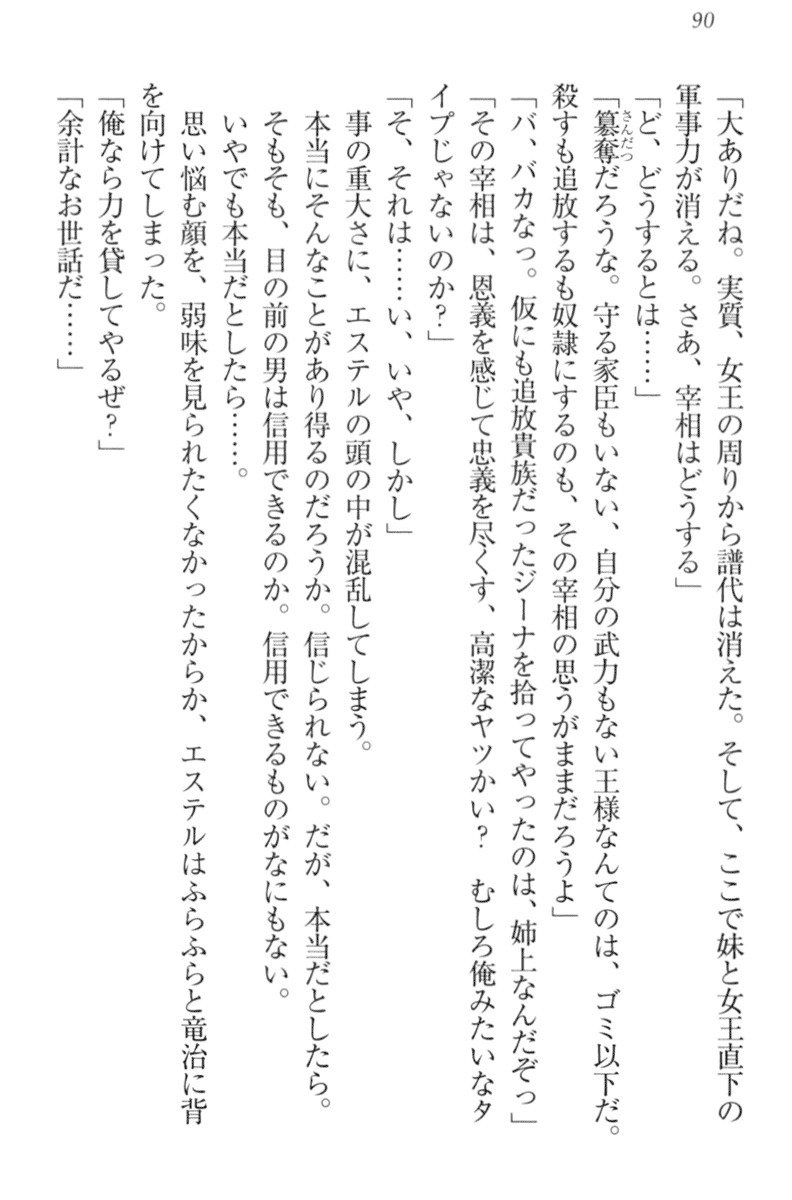 90
「大ありだね。実質、女王の周りから譜代は消えた。そして、ここで妹と女王直下の
軍事力が消える。さあ、宰相はどうする」
「ど、どうするとは……」
「簒奪さんだつだろうな。守る家臣もいない、自分の武力もない王様なんてのは、ゴミ以下だ。
殺すも追放するも奴隷にするのも、その宰相の思うがままだろうよ」
「バ、バカなっ。仮にも追放貴族だったジーナを拾ってやったのは、姉上なんだぞっ」
「その宰相は、恩義を感じて忠義を尽くす、高潔なヤツかい？　むしろ俺みたいなタ
イプじゃないのか？」
「そ、それは……い、いや、しかし」
事の重大さに、エステルの頭の中が混乱してしまう。
本当にそんなことがあり得るのだろうか。信じられない。だが、本当だとしたら。
そもそも、目の前の男は信用できるのか。信用できるものがなにもない。
いやでも本当だとしたら……。
思い悩む顔を、弱味を見られたくなかったからか、エステルはふらふらと竜治に背
を向けてしまった。
「俺なら力を貸してやるぜ？」
「余計なお世話だ……」